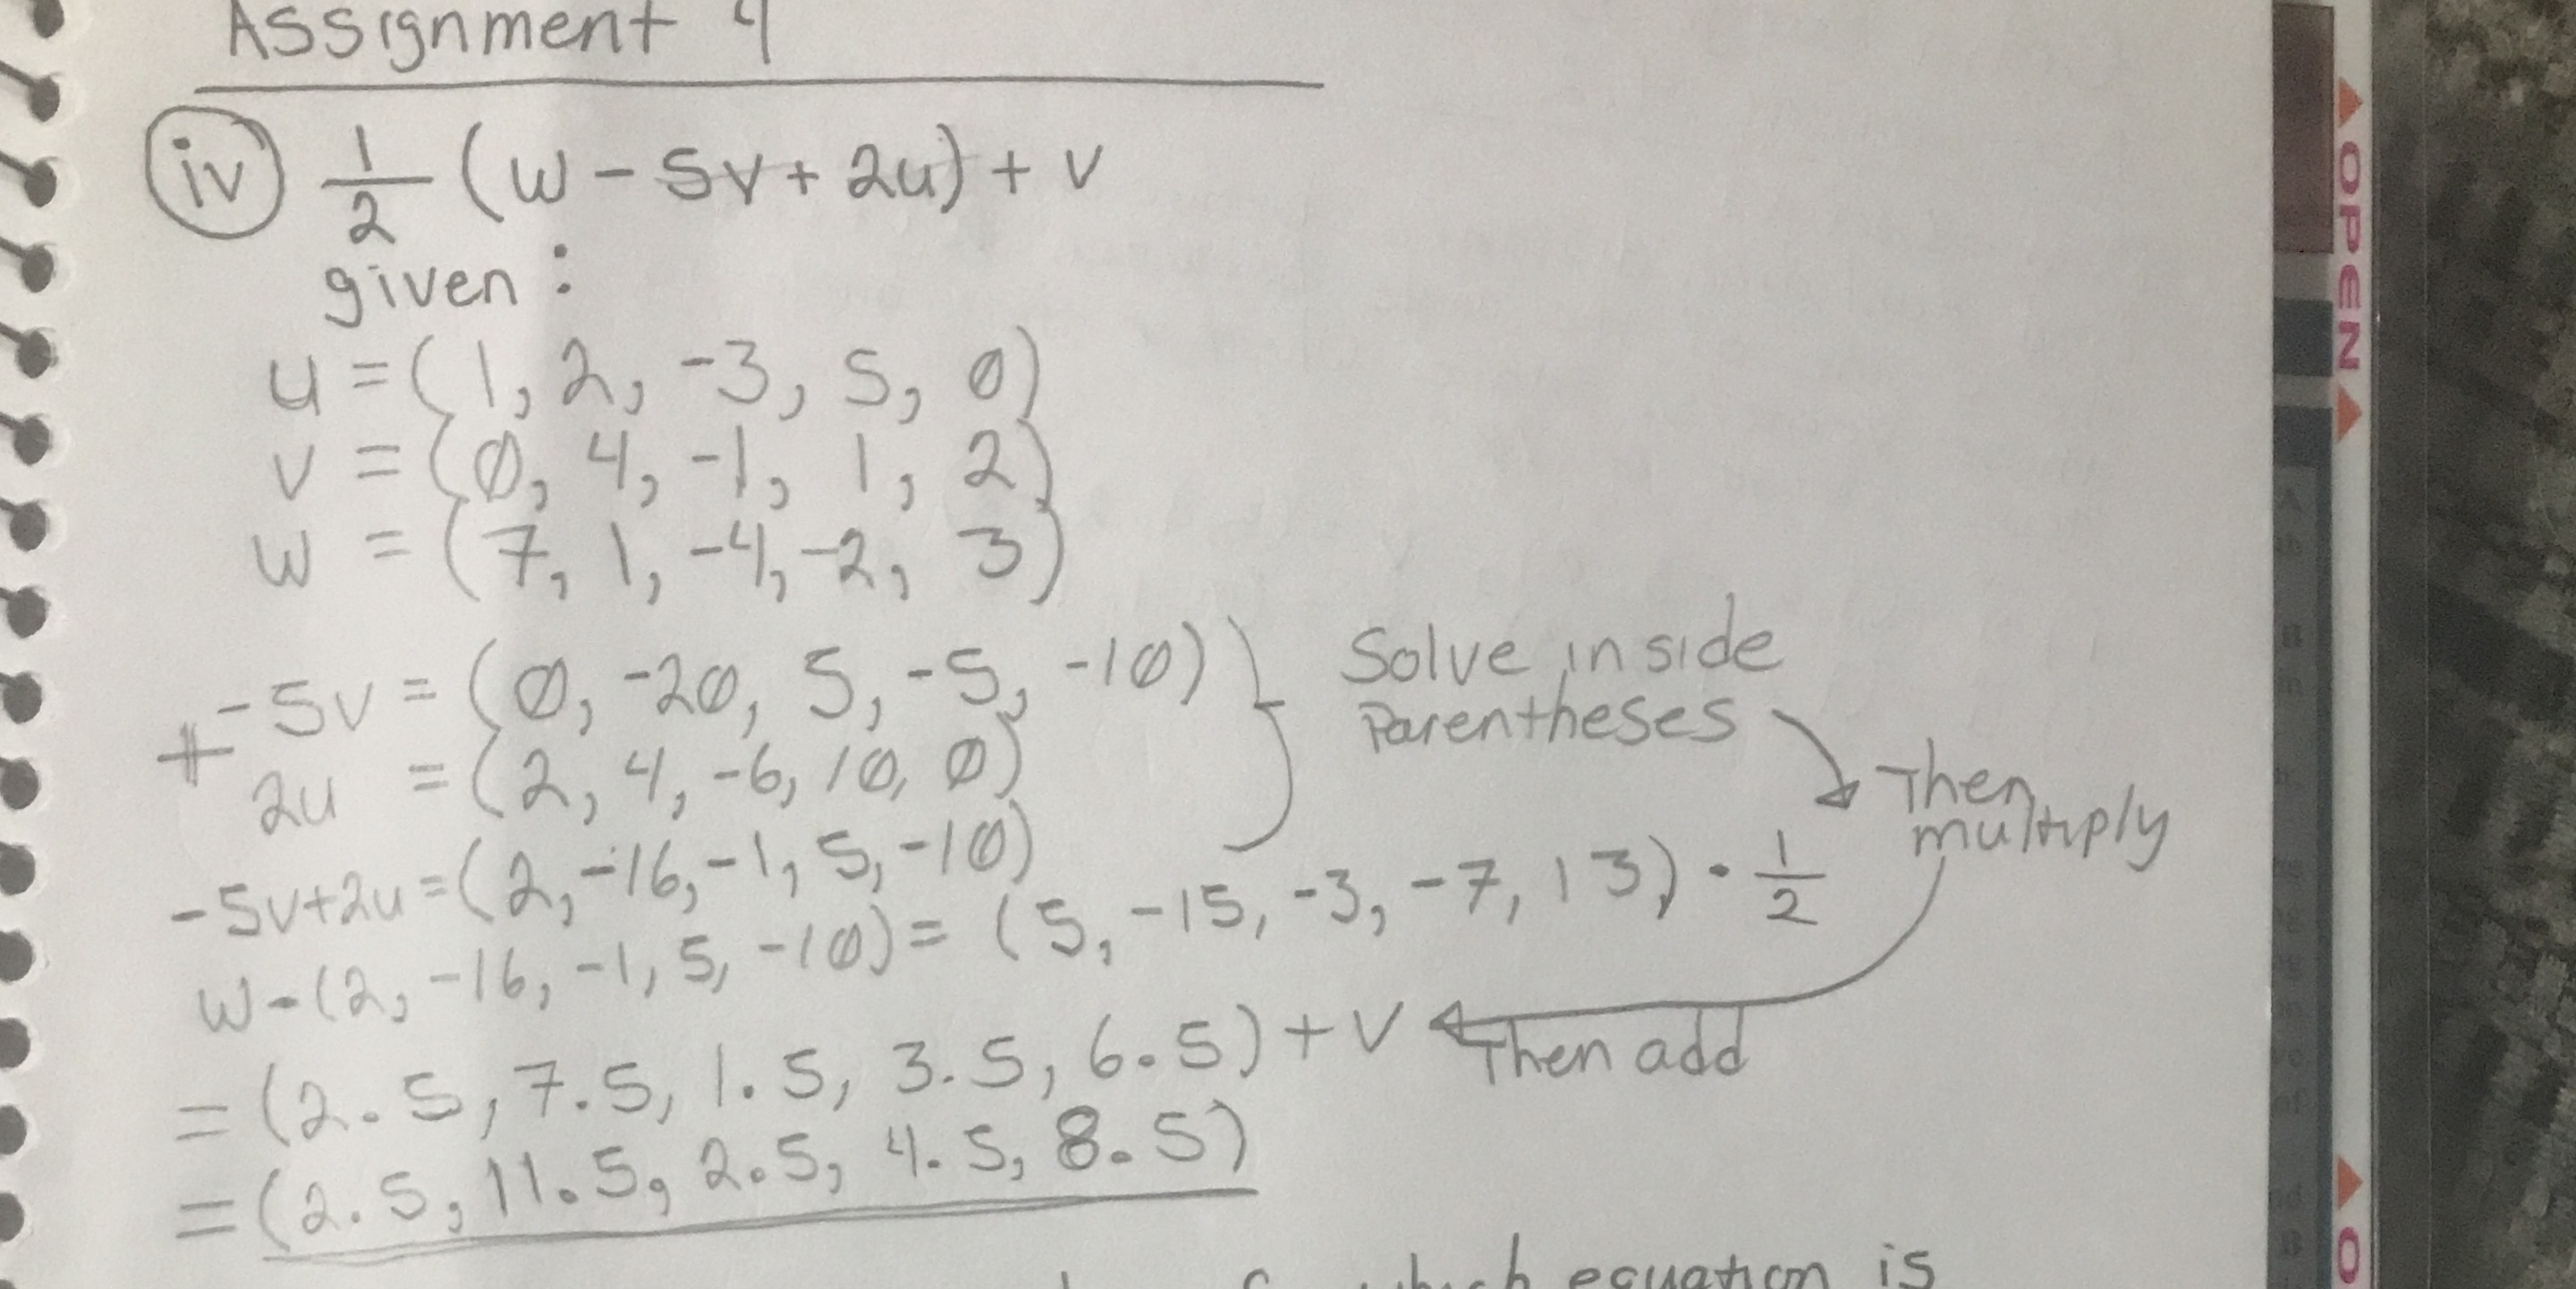 Assignment 4
iv) 1/2 (w - 5v + 2u) + v
given:
u = (1, 2, -3, 5, 0)
v = (0, 4, -1, 1, 2)
w = (7, 1, -4, -2, 3)
-5v = (0, -20, 5, -5, -10)
+
2u = (2, 4, -6, 10, 0)
Solve inside
Parentheses
Then
multiply
-5v+2u = (2, -16, -1, 5, -10)
w - (2, -16, -1, 5, -10) = (5, -15, -3, -7, 13) · 1/2
= (2.5, 7.5, 1.5, 3.5, 6.5) + v
Then add
= (2.5, 11.5, 2.5, 4.5, 8.5)
which equation is
OPEN
O